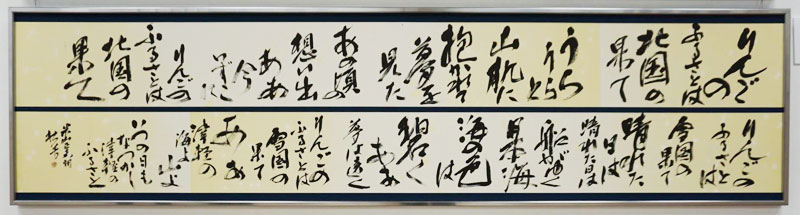 りんご
の
ふるさとは
北国の
果て
うら
うらと
山肌に
抱かれて
夢を
見た
あの頃の
想い出
ああ
今
いずこに
りんごの
ふるさとは
北国の
果て
りんごの
ふるさとは
雪国の
果て
晴れた
日は
晴れた日は
船がゆく
日本海
海の色
は
碧く
ああ
夢は遠く
りんごの
ふるさとは
雪国の
果て
ああ
津軽の
海よ
山よ
いつの日も
なつかし
津軽の
ふるさと